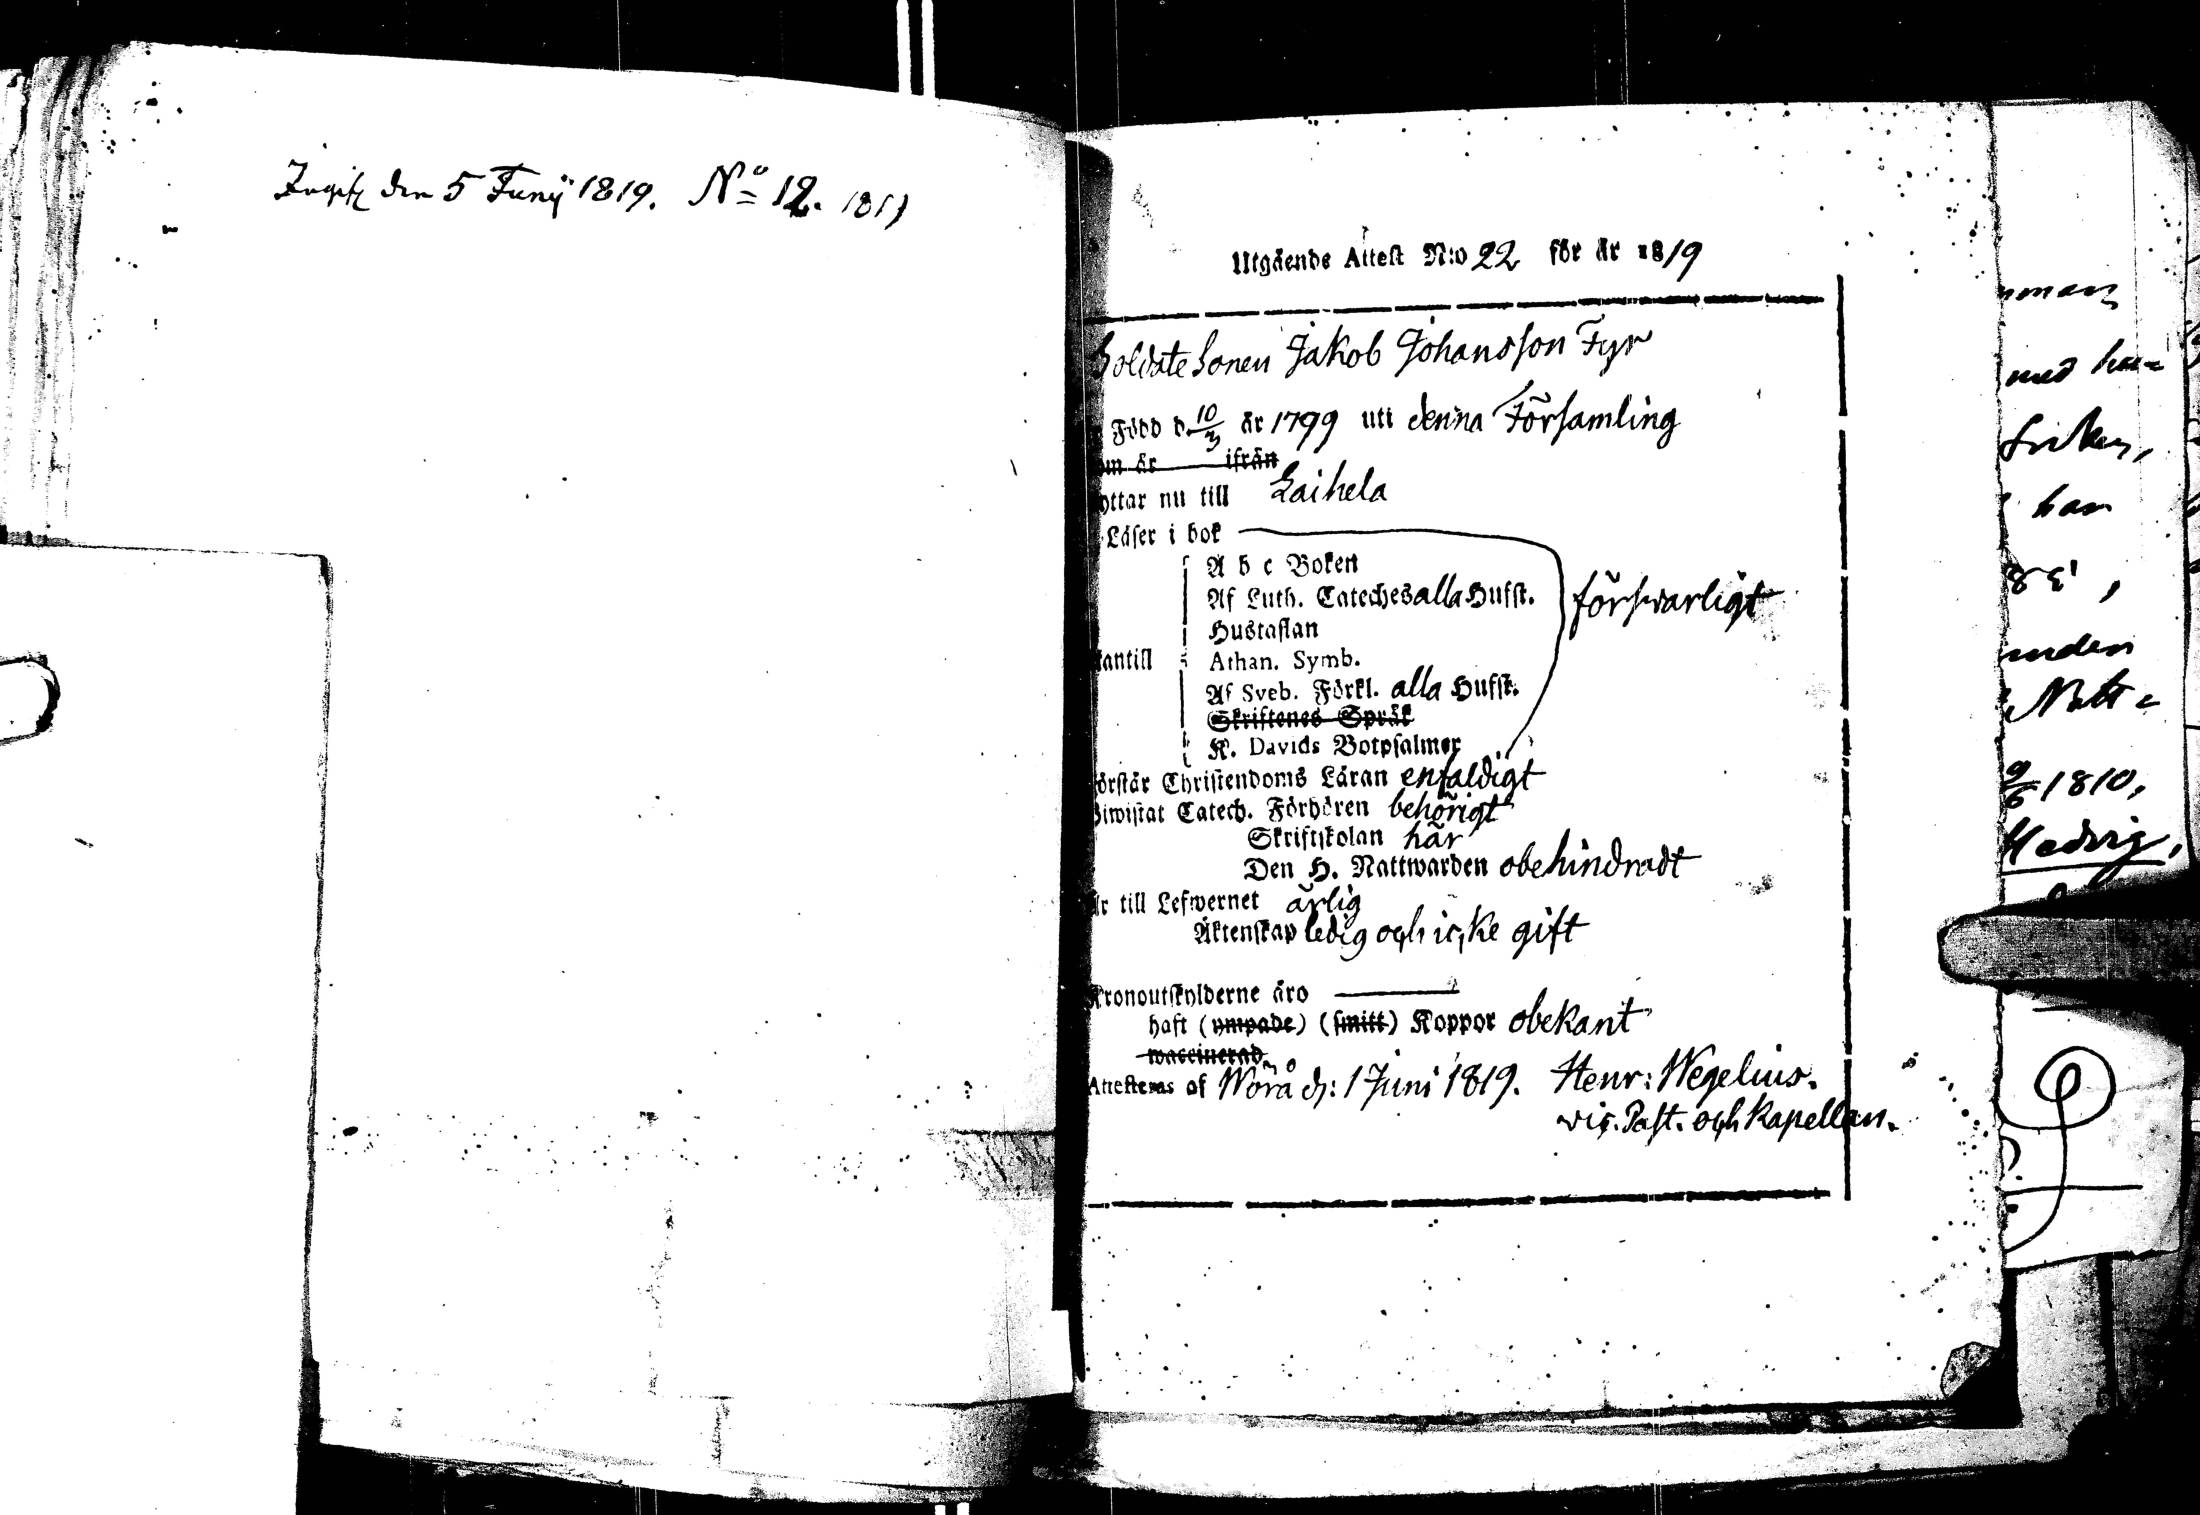 Ingif den 5 Junij 1819. No 12. 1819
Utgående Attest N:o 22 för år 1819
Soldate Sonen Jakob Johansson Fyr
Född d. 10/3 år 1799 uti denna Församling
om år ifrån
yttar nu till Laihela
Läser i bok
A b c Boken
Af Luth. Cateches alla Hufst.
försvarligt
Hustaflan
tantill Athan. Symb.
Af Sveb. Förkl. alla Hufst.
Skriftenes Språk
K. Davids Botpsalmer
örstår Christendoms Läran enfaldigt
Biwistat Catech. Förhören behörigt
Skriftskolan här
Den H. Nattwarden obehindradt
Är till Lefwernet ärlig
Äktenskap ledig och icke gift
Kronoutskylderne äro
haft (ympade) (smitt) Koppor obekant
waccinerad
Attesteras af Wörå d: 1 Juni 1819. Henr: Wegelius.
vic. Past. och Kapellan.
med hu=
han
Natt=
9/6 1810,
Hedvig,